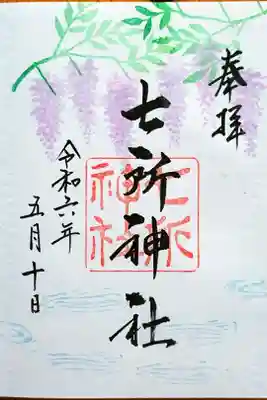 奉拝
七所神社
七所
神社
令和六年
五月十日